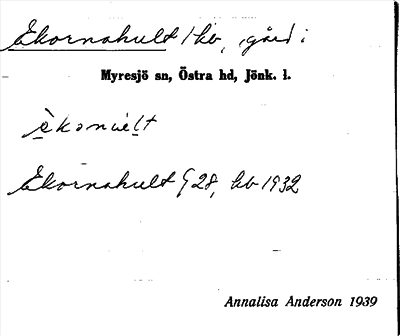 Ekornahult 1 kb, gård i
Myresjö sn, Östra hd, Jönk. l.
Ekornahult G 28, kb 1932
Annalisa Anderson 1939